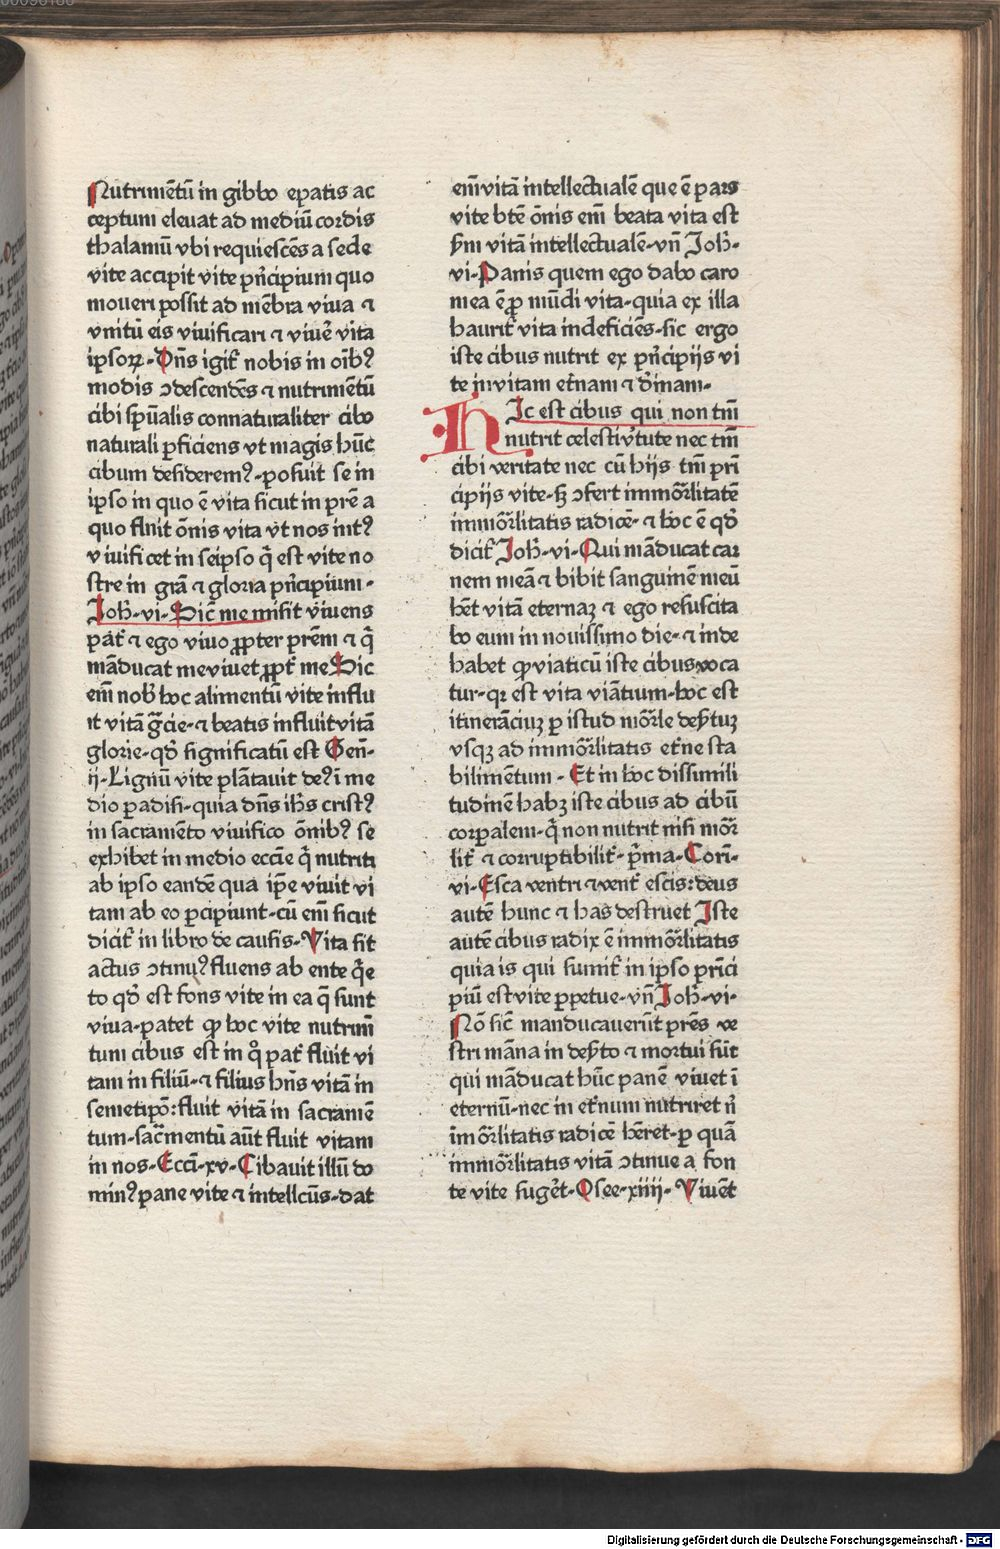 Nutrimētū in gibbo epatis ac
ceptum eleuat ad mediū cordis
thalamū vbi requiescēs a sede
vite accipit vite pn̄cipium quo
moueri possit ad mēbra viua ⁊
vnitū eis viuificari ⁊ viuē vita
ipsoꝝ. Dn̄s igit̄ nobis in oīb⁹
modis ↄdescendēs ⁊ nutrimētū
cibi spūalis connaturaliter cibo
naturali ꝑficiens vt magis hūc
cibum desiderem⁹. posuit se in
ipso in quo ē vita sicut in prē a
quo fluit ōnis vita vt nos int⁹
viuificet in seipso q̄ est vite no
stre in grā ⁊ gloria pn̄cipium.
Joh̄. vi. Sic̄ me misit viuens
pat̄ ⁊ ego viuo ꝓpter prēm ⁊ q̄
māducat me viuet ꝓpt̄ me Sic
em̄ nob̄ hoc alimentū vite influ
it vitā gr̄cie. ⁊ beatis influit vitā
glorie. qd̄ significatū est Gen̄.
ij. Lignū vite plātauit de⁹ ī me
dio ꝑadisi. quia dn̄s ih̄s crist⁹
in sacramēto viuifico ōnib⁹ se
exhibet in medio eccīe q̄ nutriti
ab ipso eandē qua ip̄e viuit vi
tam ab eo ꝑcipiunt. cū em̄ sicut
dicit̄ in libro de causis. Vita sit
actus ↄtinu⁹ fluens ab ente q̄e
to qd̄ est fons vite in ea q̄ sunt
viua. patet ꝙ hoc vite nutrim̄
tum cibus est in qͦ pat̄ fluit vi
tam in filiū. ⁊ filius hn̄s vitā in
semetip̄o: fluit vitā in sacramē
tum. sac̄mentū aūt fluit vitam
in nos. Eccī. xv. Cibauit illū do
min⁹ pane vite ⁊ intellcūs. dat
em̄ vitā intellectualē que ē pars
vite btē ōnis em̄ beata vita est
sm̄ vitā intellectualē. vn̄ Joh̄.
vi. Panis quem ego dabo caro
mea ē ꝓ mūdi vita. quia ex illa
haurit̄ vita indeficiēs. sic ergo
iste cibus nutrit ex pn̄cipijs vi
te in vitam et̄nam ⁊ dīnam.
HIc est cibus qui non tm̄
nutrit celesti v̄tute nec tm̄
cibi veritate nec cū hijs tm̄ prī
cipijs vite. sꝫ ↄfert immōrlitatē
immōrlitatis radicē. ⁊ hoc ē qd̄
dicit̄ Joh̄. vi. Qui māducat car
nem meā ⁊ bibit sanguinē meū
hēt vitā eternaꝫ ⁊ ego resuscita
bo eum in nouissimo die. ⁊ inde
habet ꝙ viaticū iste cibus voca
tur. qꝛ est vita viātium. hoc est
itinerāciuꝫ ꝑ istud mōrle desertuꝫ
vsqꝫ ad immōrlitatis et̄ne sta
bilimētum. Et in hoc dissimili
tudinē habꝫ iste cibus ad cibū
corꝑalem. q̄ non nutrit nisi mōr
lit̄ ⁊ corruptibilit̄. prīma. Corī.
vi. Esca ventri ⁊ vent̄ escis: deus
autē hunc ⁊ has destruet Iste
autē cibus radix ē immōrlitatis
quia is qui sumit̄ in ipso prīci
piū est vite ꝑpetue. vn̄ Joh̄. vi.
Nō sic̄ manducauerūt prēs ve
stri māna in desto ⁊ mortui sūt
qui māducat hūc panē viuet ī
eternū. nec in et̄num nutriret n̄
īmōrlitatis radicē hēret. ꝑ quā
immōrlitatis vitā ↄtinue a fon
te vite suget̄. Osee. xiiij. Viuēt
Digitalisierung gefördert durch die Deutsche Forschungsgemeinschaft - DFG